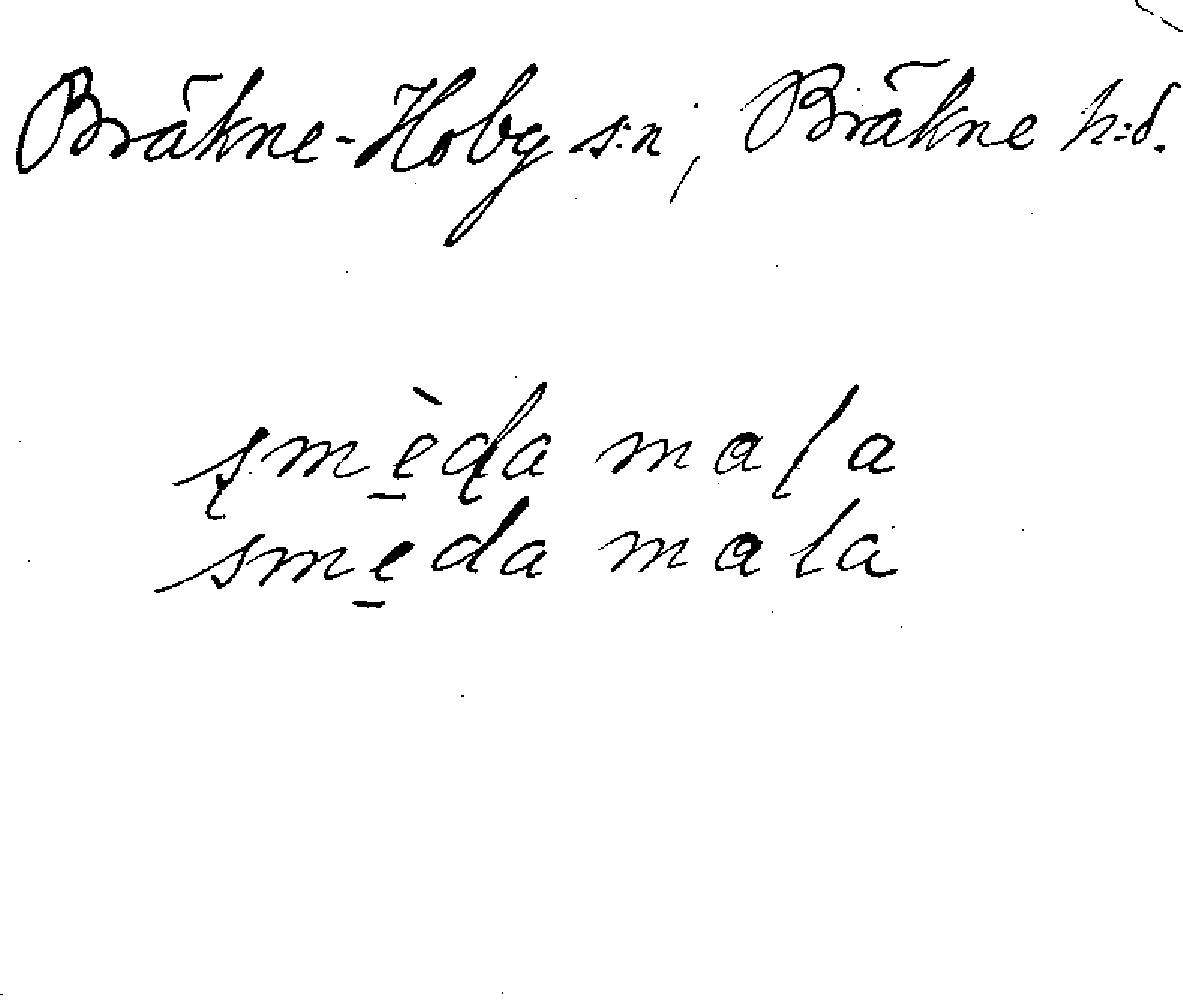 Bräkne-Hoby s:n, Bräkne h:d.
smèda mala
smeda mala